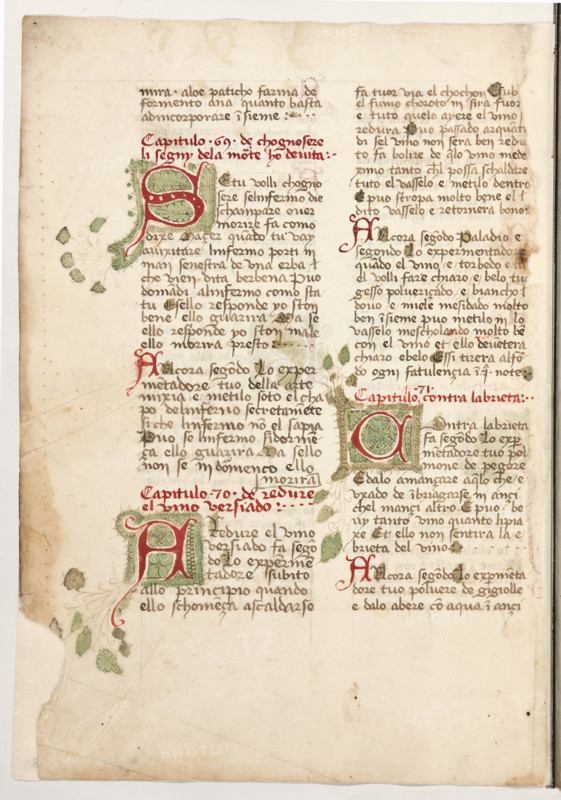 mira · aloe paticho farina de
formento ana quanto basta
adincorporare īsieme
Capitulo · 69 · de chognosere
li segny dela mōte
SE tu volli chogno
sere selinfermo die
schanpare over
morire fa como
dixe quādo tu vay
avixitare linfermo porti in
man senestra de una erba
che vien dita berbena puo
domādi alinfermo como sta
tu Esello responde yo ston
bene ello guarira Ma se
ello responde yo ston male
ello morira presto
Alchora segōdo Lo exper
metadore tuo della arte
mixia e metilo soto el cha
po delinfermo secretamēte
si che linfermo nō el sapia
Puo se linfermo sidorme
ça ello guarira Ma sello
non se indormenco ello
morira
Capitulo · 70 · de redure
el vino versiado
A redure el vino
versiado fa sego
do Lo experimē
tadore subito
allo principio quando
ello schomēça ascaldarse
fa tuor via el chochon
el fumo choroto in sira fuor
e tuto quelo ayere el vino
redura Puo passado arquāti
di sel vino non sera ben redu
to fa bolire de q̄lo vino mede
ximo tanto chi possa schaldare
tuto el vasselo e metilo dentro
E puo stropa molto bene el
dito vasselo e retornera bono
Alcora segōdo Paladio e
segondo Lo experimentadore
quādo el vino e torbedo e tu
el volli fare chiaro e belo tu
gesso polveriçado e biancho
dovo e miele mesidado molto
ben īsieme puo metilo in lo
vasselo mescholado molto bē
con el vino et ello deventera
chiaro ebelo Essi tirera alfō
do ogni fatulençia note
Capitulo 71 contra labrieta
Contra labrieta
fa segōdo Lo exp
metadore tuo pol
mone de pegore
Edalo amançare aq̄lo che e
vxado de ibriagarse in ançi
chel mançi altro E puo be
va tanto vino quanto lipia
xe Et ello non sentira la e
brieta del vino
Alcora segōdo Lo expimēta
dore tuo polvere de gigiolle
e dalo abere cō aqua ī ançi